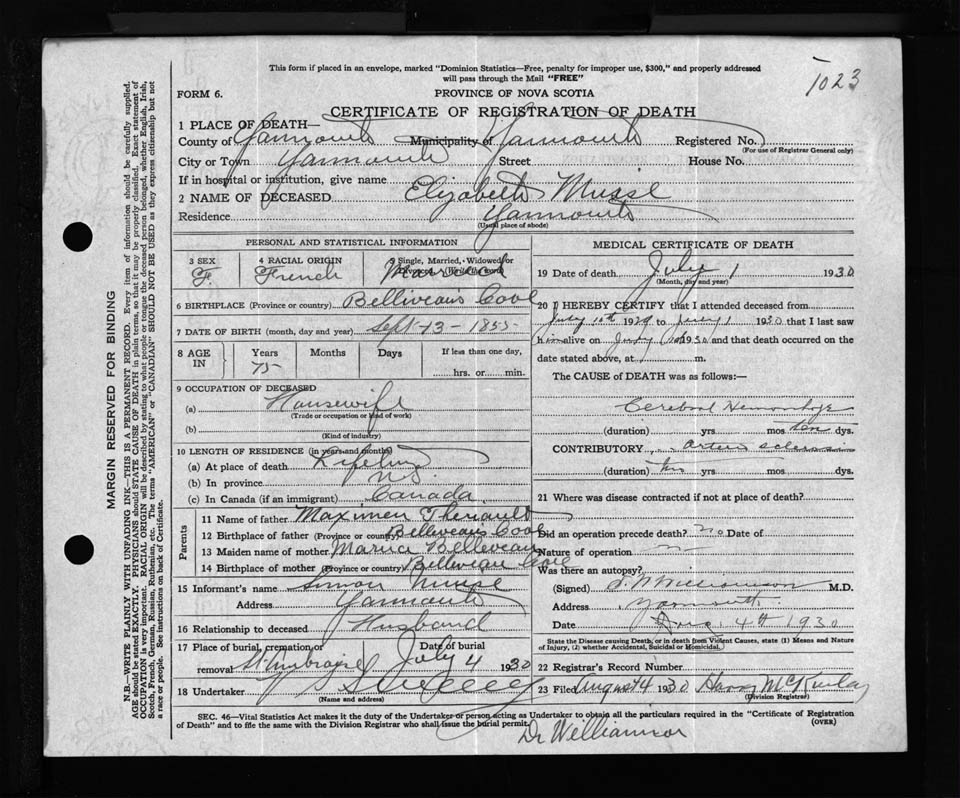 1023
This form if placed in an envelope, marked "Dominion Statistics—Free, penalty for improper use, $300," and properly addressed
will pass through the Mail "FREE"
FORM 6.
PROVINCE OF NOVA SCOTIA
CERTIFICATE OF REGISTRATION OF DEATH
1 PLACE OF DEATH—
County of Yarmouth Municipality of Yarmouth Registered No.
(For use of Registrar General only)
City or Town Yarmouth Street House No.
If in hospital or institution, give name
2 NAME OF DECEASED Elizabeth Muise
Residence Yarmouth
(Usual place of abode)
PERSONAL AND STATISTICAL INFORMATION
3 SEX F.
4 RACIAL ORIGIN French
5 Single, Married, Widowed or Divorced (Write the word) Married
6 BIRTHPLACE (Province or country) Belliveau's Cove
7 DATE OF BIRTH (month, day and year) Sept-13-1855-
8 AGE IN Years 75 Months Days If less than one day, hrs. or min.
9 OCCUPATION OF DECEASED
(a) Housewife
(Trade or occupation or kind of work)
(b)
(Kind of industry)
10 LENGTH OF RESIDENCE (in years and months)
(a) At place of death Lifetime
(b) In province N.S.
(c) In Canada (if an immigrant) Canada
Parents
11 Name of father Maximen Theriault
12 Birthplace of father (Province or country) Belliveau's Cove
13 Maiden name of mother Belliveau
14 Birthplace of mother (Province or country) Belliveau Cove
15 Informant's name Simon Muise
Address Yarmouth
16 Relationship to deceased Husband
17 Place of burial, cremation or removal St Ambroise Date of burial July 4 1930
18 Undertaker
(Name and address)
MEDICAL CERTIFICATE OF DEATH
19 Date of death July 1 1930
(Month, day and year)
20 I HEREBY CERTIFY that I attended deceased from
July 10th 1929 to July 1 1930 that I last saw
him alive on July 1930 and that death occurred on the
date stated above, at m.
The CAUSE of DEATH was as follows:
Cerebral Hemorrhage
(duration) yrs mos ten dys.
CONTRIBUTORY Arterio sclerosis
(duration) yrs mos dys.
21 Where was disease contracted if not at place of death?
Did an operation precede death? no Date of
Nature of operation
Was there an autopsy?
(Signed) Williamson M.D.
Address Yarmouth
Date 4th 1930
State the Disease causing Death, or in death from Violent Causes, state (1) Means and Nature
of Injury, (2) whether Accidental, Suicidal or Homicidal.
22 Registrar's Record Number
23 Filed August 4 1930 Harry
(Division Registrar)
SEC. 46—Vital Statistics Act makes it the duty of the Undertaker or person acting as Undertaker to obtain all the particulars required in the "Certificate of Registration
of Death" and to file the same with the Division Registrar who shall issue the burial permit.
(OVER)
Dr Williamson
MARGIN RESERVED FOR BINDING
N.B.—WRITE PLAINLY WITH UNFADING INK—THIS IS A PERMANENT RECORD. Every item of information should be carefully supplied.
AGE should be stated EXACTLY. PHYSICIANS should STATE CAUSE OF DEATH in plain terms, so that it may be properly classified. Exact statement of
OCCUPATION is very important. RACIAL ORIGIN will be described by stating to what people or tongue the deceased person belonged, whether English, Irish,
Scotch, French, German, Russian, Ruthenian, etc. The terms "AMERICAN" or "CANADIAN" SHOULD NOT BE USED as they express citizenship but not
a race or people. See instructions on back of Certificate.